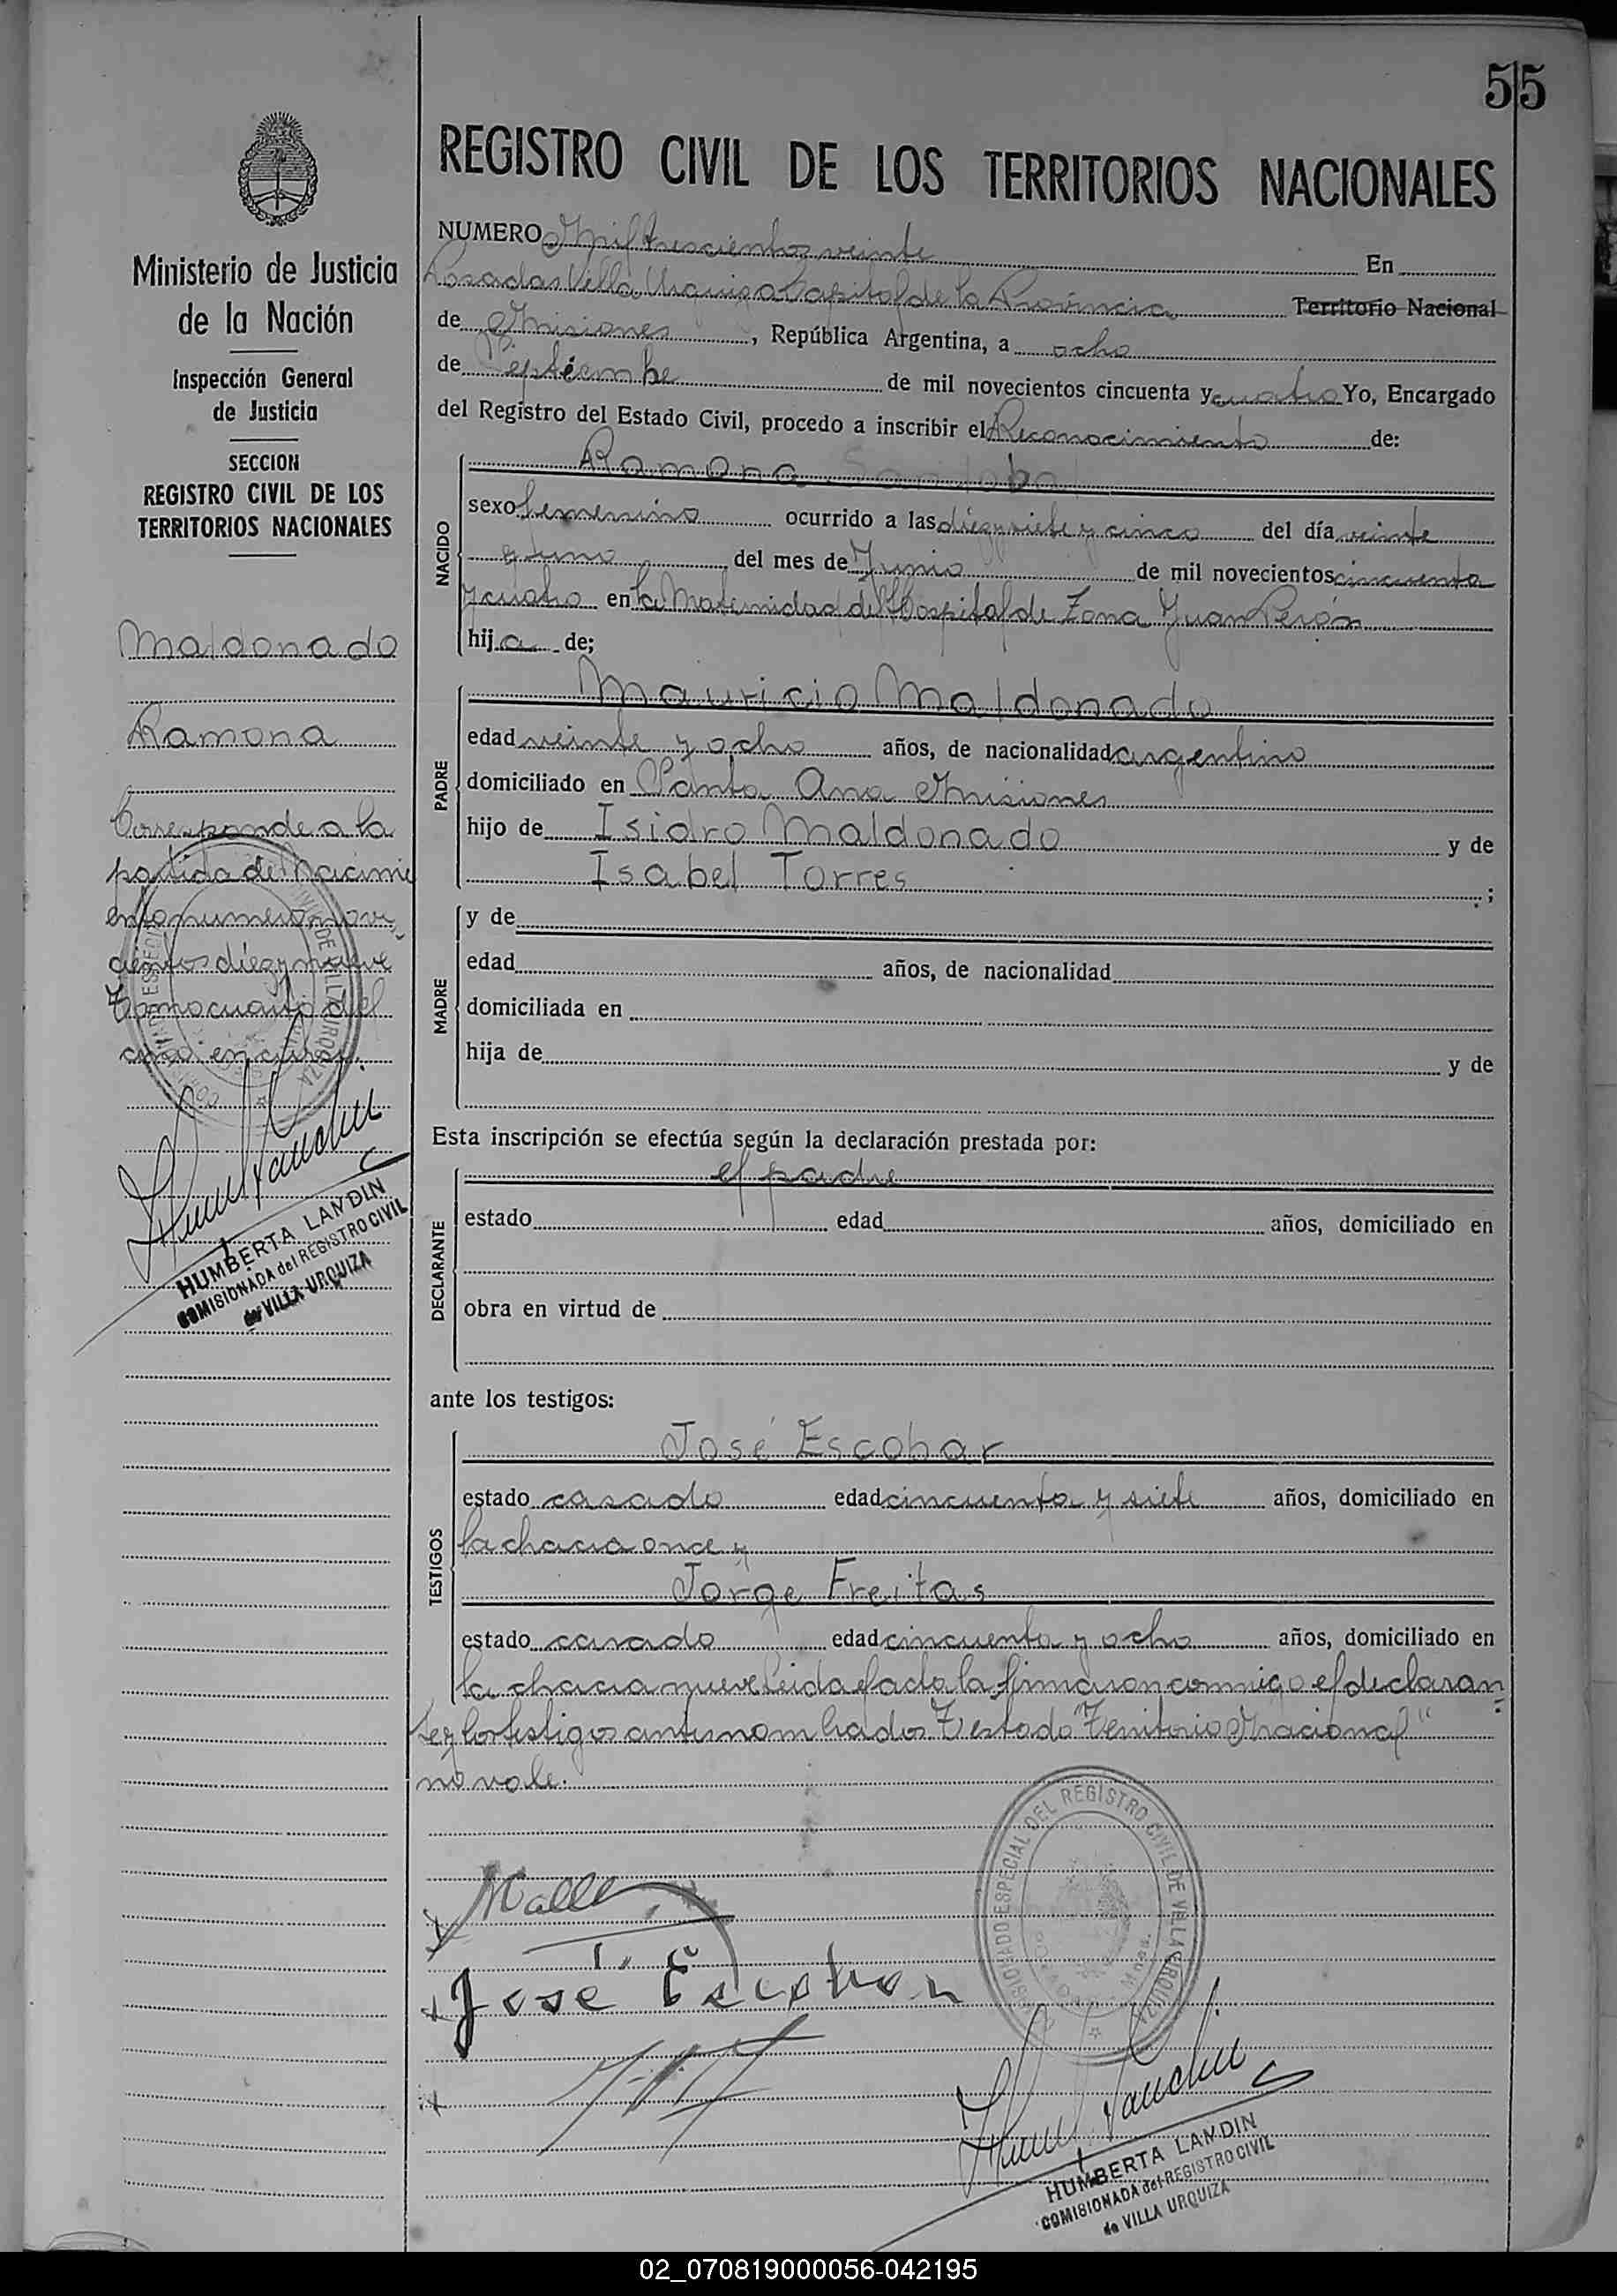 55
REGISTRO CIVIL DE LOS TERRITORIOS NACIONALES
Ministerio de Justicia
de la Nación
Inspección General
de Justicia
SECCION
REGISTRO CIVIL DE LOS
TERRITORIOS NACIONALES
Maldonado
Ramona
Corresponde a la
partida de Nacimi
ento numero nove
cientos diez y nueve
Tomo cuarto del
año en curso.
HUMBERTA LANDIN
COMISIONADA del REGISTRO CIVIL
de VILLA URQUIZA
NUMERO Mil trescientos veinte En
Posadas Villa Urquiza Capital de la Provincia Territorio Nacional
de Misiones, República Argentina, a ocho
de Septiembre de mil novecientos cincuenta y cuatro Yo, Encargado
del Registro del Estado Civil, procedo a inscribir el Reconocimiento de:
NACIDO
Ramona
sexo femenino ocurrido a las diez y siete y cinco del día veinte
y uno del mes de Junio de mil novecientos cincuenta
y cuatro en la Maternidad del Hospital de Zona Juan Perón
hija de;
PADRE
Mauricio Maldonado
edad veinte y ocho años, de nacionalidad argentino
domiciliado en Santa Ana Misiones
hijo de Isidro Maldonado y de
Isabel Torres ;
MADRE
y de
edad años, de nacionalidad
domiciliada en
hija de y de
Esta inscripción se efectúa según la declaración prestada por:
DECLARANTE
el padre
estado edad años, domiciliado en
obra en virtud de
ante los testigos:
TESTIGOS
José Escobar
estado casado edad cincuenta y siete años, domiciliado en
la chacra once y
Jorge Freitas
estado casado edad cincuenta y ocho años, domiciliado en
la chacra nueve Leida el acta la firmaron conmigo el declaran
te y los testigos antes nombrados Testado "Territorio Nacional"
no vale.
José Escobar
COMISIONADO ESPECIAL DEL REGISTRO CIVIL DE VILLA URQUIZA
HUMBERTA LANDIN
COMISIONADA del REGISTRO CIVIL
de VILLA URQUIZA
02_070819000056-042195